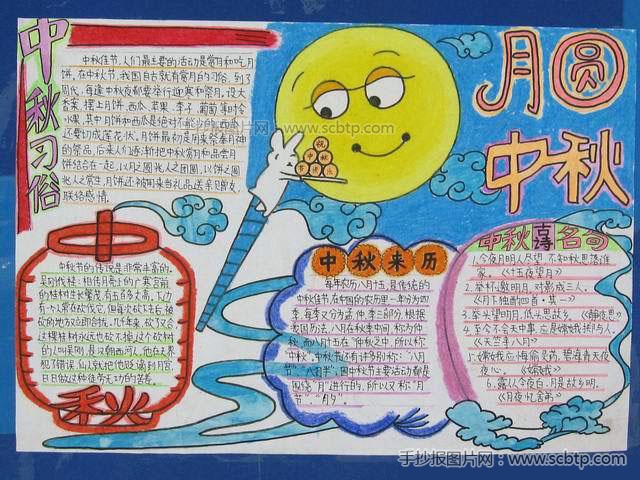 中秋习俗
中秋佳节,人们最主要的活动是赏月和吃月
饼。在中秋节,我国自古就有赏月的习俗,到了
周代,每逢中秋夜都要举行迎寒和祭月。设大
香案,摆上月饼、西瓜、苹果、李子、葡萄等时令
水果,其中月饼和西瓜是绝对不能少的。西瓜
还要切成莲花状。月饼最初是用来祭奉月神
的祭品,后来人们逐渐把中秋赏月和品尝月
饼结合在一起,以月之圆兆人之团圆,以饼之圆
兆人之常生,月饼还被用来当礼品送亲见朋友,
联络感情。
祝
中秋
节快乐
月圆
中秋
中秋节的传说是非常丰富的。
吴刚伐桂:相传月亮上的广寒宫前
的桂树生长繁茂,有五百多丈高,下边
有一个人常在砍伐它,但每次砍下去后,被
砍的地方立即合拢。几千来,砍了又合
这棵桂树永远也砍不掉。这个砍树
的人叫吴刚,是汉朝西河人,他在天界
犯了错误,仙人就把他贬谪到月宫,
日日做这种徒劳无功的苦差。
秋
中秋来历
每年农历八月十五,是传统的
中秋佳节,在中国的农历里一年分为四
季,每季又分孟、仲、季三部分,根据
我国历法,八月在秋季中间,称为仲
秋,而八月十五在“仲秋之中,所以称
“中秋”,中秋节有许多别称:“八月
节”“八月半”,因中秋节主要活动都是
围绕“月”进行的,所以又称“月
节”,“月夕。
中秋古诗名句
1.今夜月明人尽望,不知秋思落谁
家。《十五夜望月》
2.举杯邀明月,对影成三人。
《月下独酌四首·其一》
3.举头望明月,低头思故乡。《静夜思》
4.至今不会天中事,应是嫦娥掷与人。
《天竺寺八月》
5.嫦娥应悔偷灵药,碧海青天夜
夜心。《嫦娥》
6.露从今夜白,月是故乡明。
《月夜忆舍弟》
手抄报图片网:www.scbtp.com
手抄报图片网:www.scbtp.com